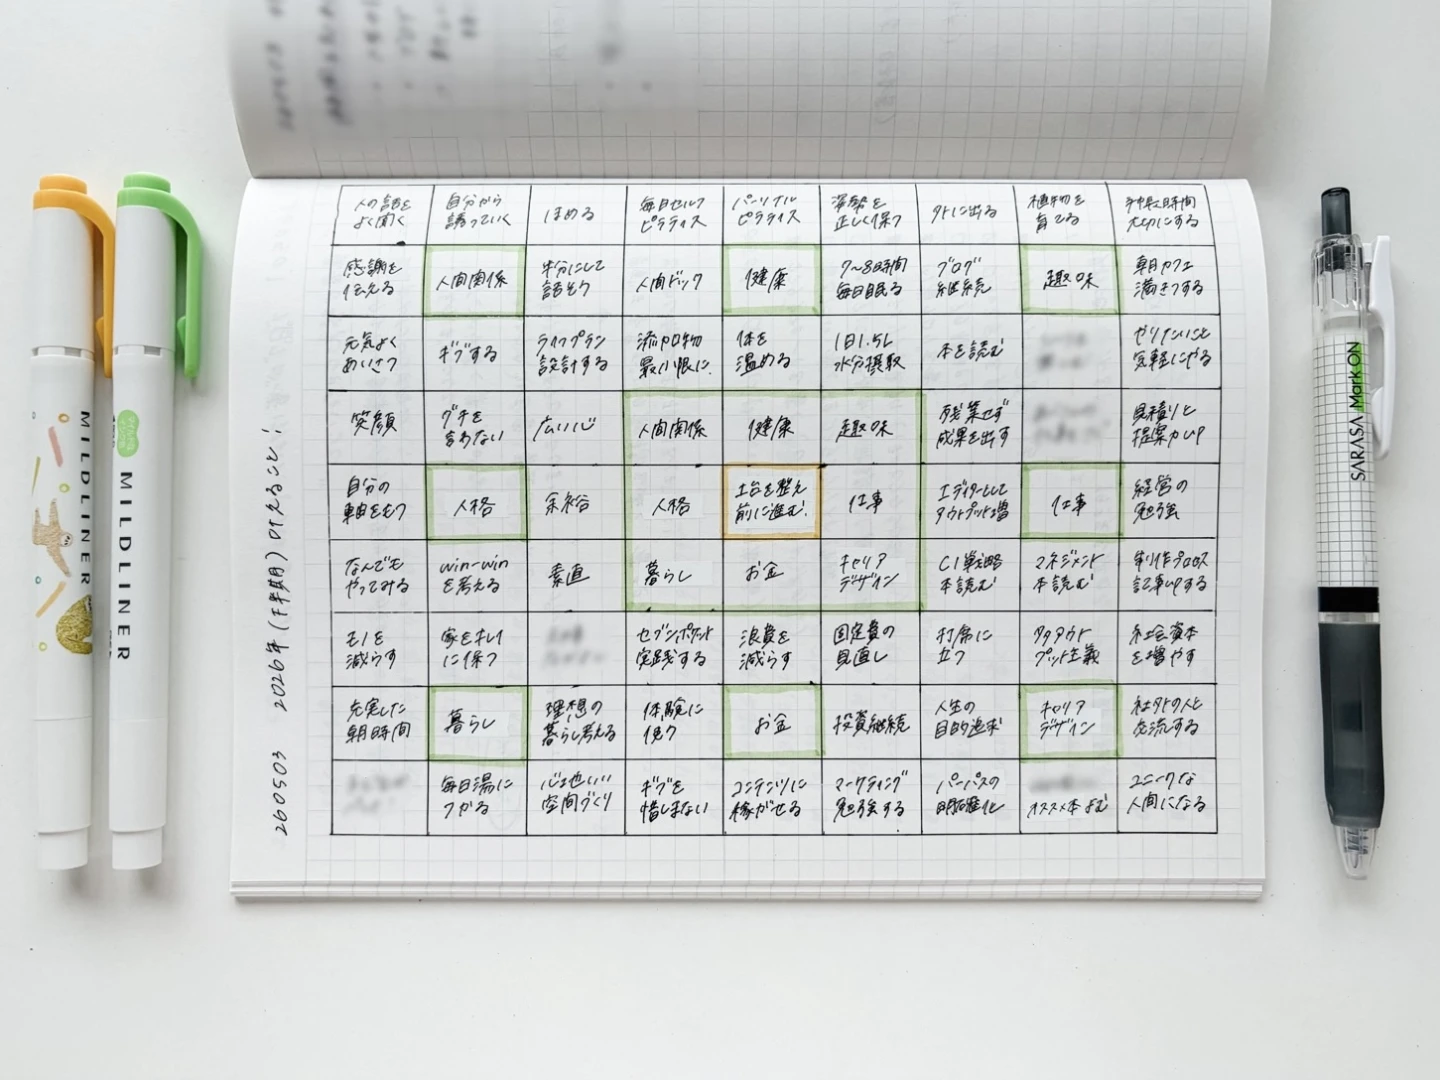 人の話を
よく聞く
自分から
誘っていく
ほめる
毎日セルフ
ピラティス
パーソナル
ピラティス
姿勢を
正しく保つ
外に出る
植物を
育てる
手帳時間
大切にする
感謝を
伝える
人間関係
半分にして
話そう
人間ドック
健康
7〜8時間
毎日眠る
ブログ
継続
趣味
朝カフェ
満きつする
元気よく
あいさつ
ギブする
ライフプラン
設計する
添加物
最小限に
体を
温める
1日1.5L
水分摂取
本を読む
やりたいこと
気軽にやる
笑顔
グチを
言わない
広い心
人間関係
健康
趣味
残業せず
成果を出す
見積りと
提案力UP
自分の
軸をもつ
人格
余裕
人格
土台を整え
前に進む
仕事
エディターとして
アウトプット増
仕事
経営の
勉強
なんでも
やってみる
win-win
を考える
素直
暮らし
お金
キャリア
デザイン
CI戦略
本読む
マネジメント
本読む
制作プロセス
記事UPする
モノを
減らす
家をキレイ
に保つ
セブンポケット
実践する
浪費を
減らす
固定費の
見直し
打席に
立つ
アウト
プット主義
社会資本
を増やす
充実した
朝時間
暮らし
理想の
暮らし考える
体験に
使う
お金
投資継続
人生の
目的追求
キャリア
デザイン
社外の人と
交流する
毎日湯に
つかる
心地いい
空間づくり
ギブを
惜しまない
コンテンツに
稼がせる
マーケティング
勉強する
パーパスの
明確化
オススメ本よむ
ユニークな
人間になる
260503 2026年(下半期)叶えること!
MILDLINER
MILDLINER
SARASA Mark ON